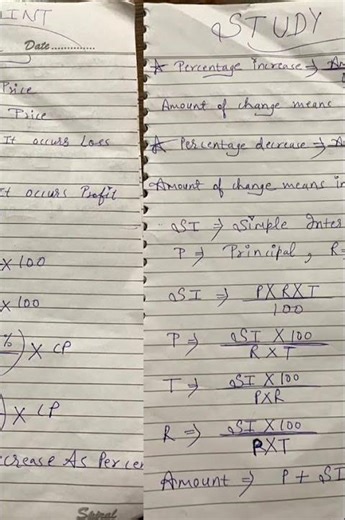 INT
Date
Price
Price
It occurs Loss
It occurs Profit
X 100
X 100
%) X CP
) X CP
crease As Percen
Spiral
STUDY
☆ Percentage increase ⇒ Am
Amount of change means
☆ Percentage decrease ⇒ A
Amount of change means in
SI ⇒ Simple Inter
P ⇒ Principal, R=
SI ⇒ PXRXT
100
P ⇒ SI X 100
R X T
T ⇒ SI X 100
PXR
R ⇒ SI X 100
PXT
Amount ⇒ P + SI